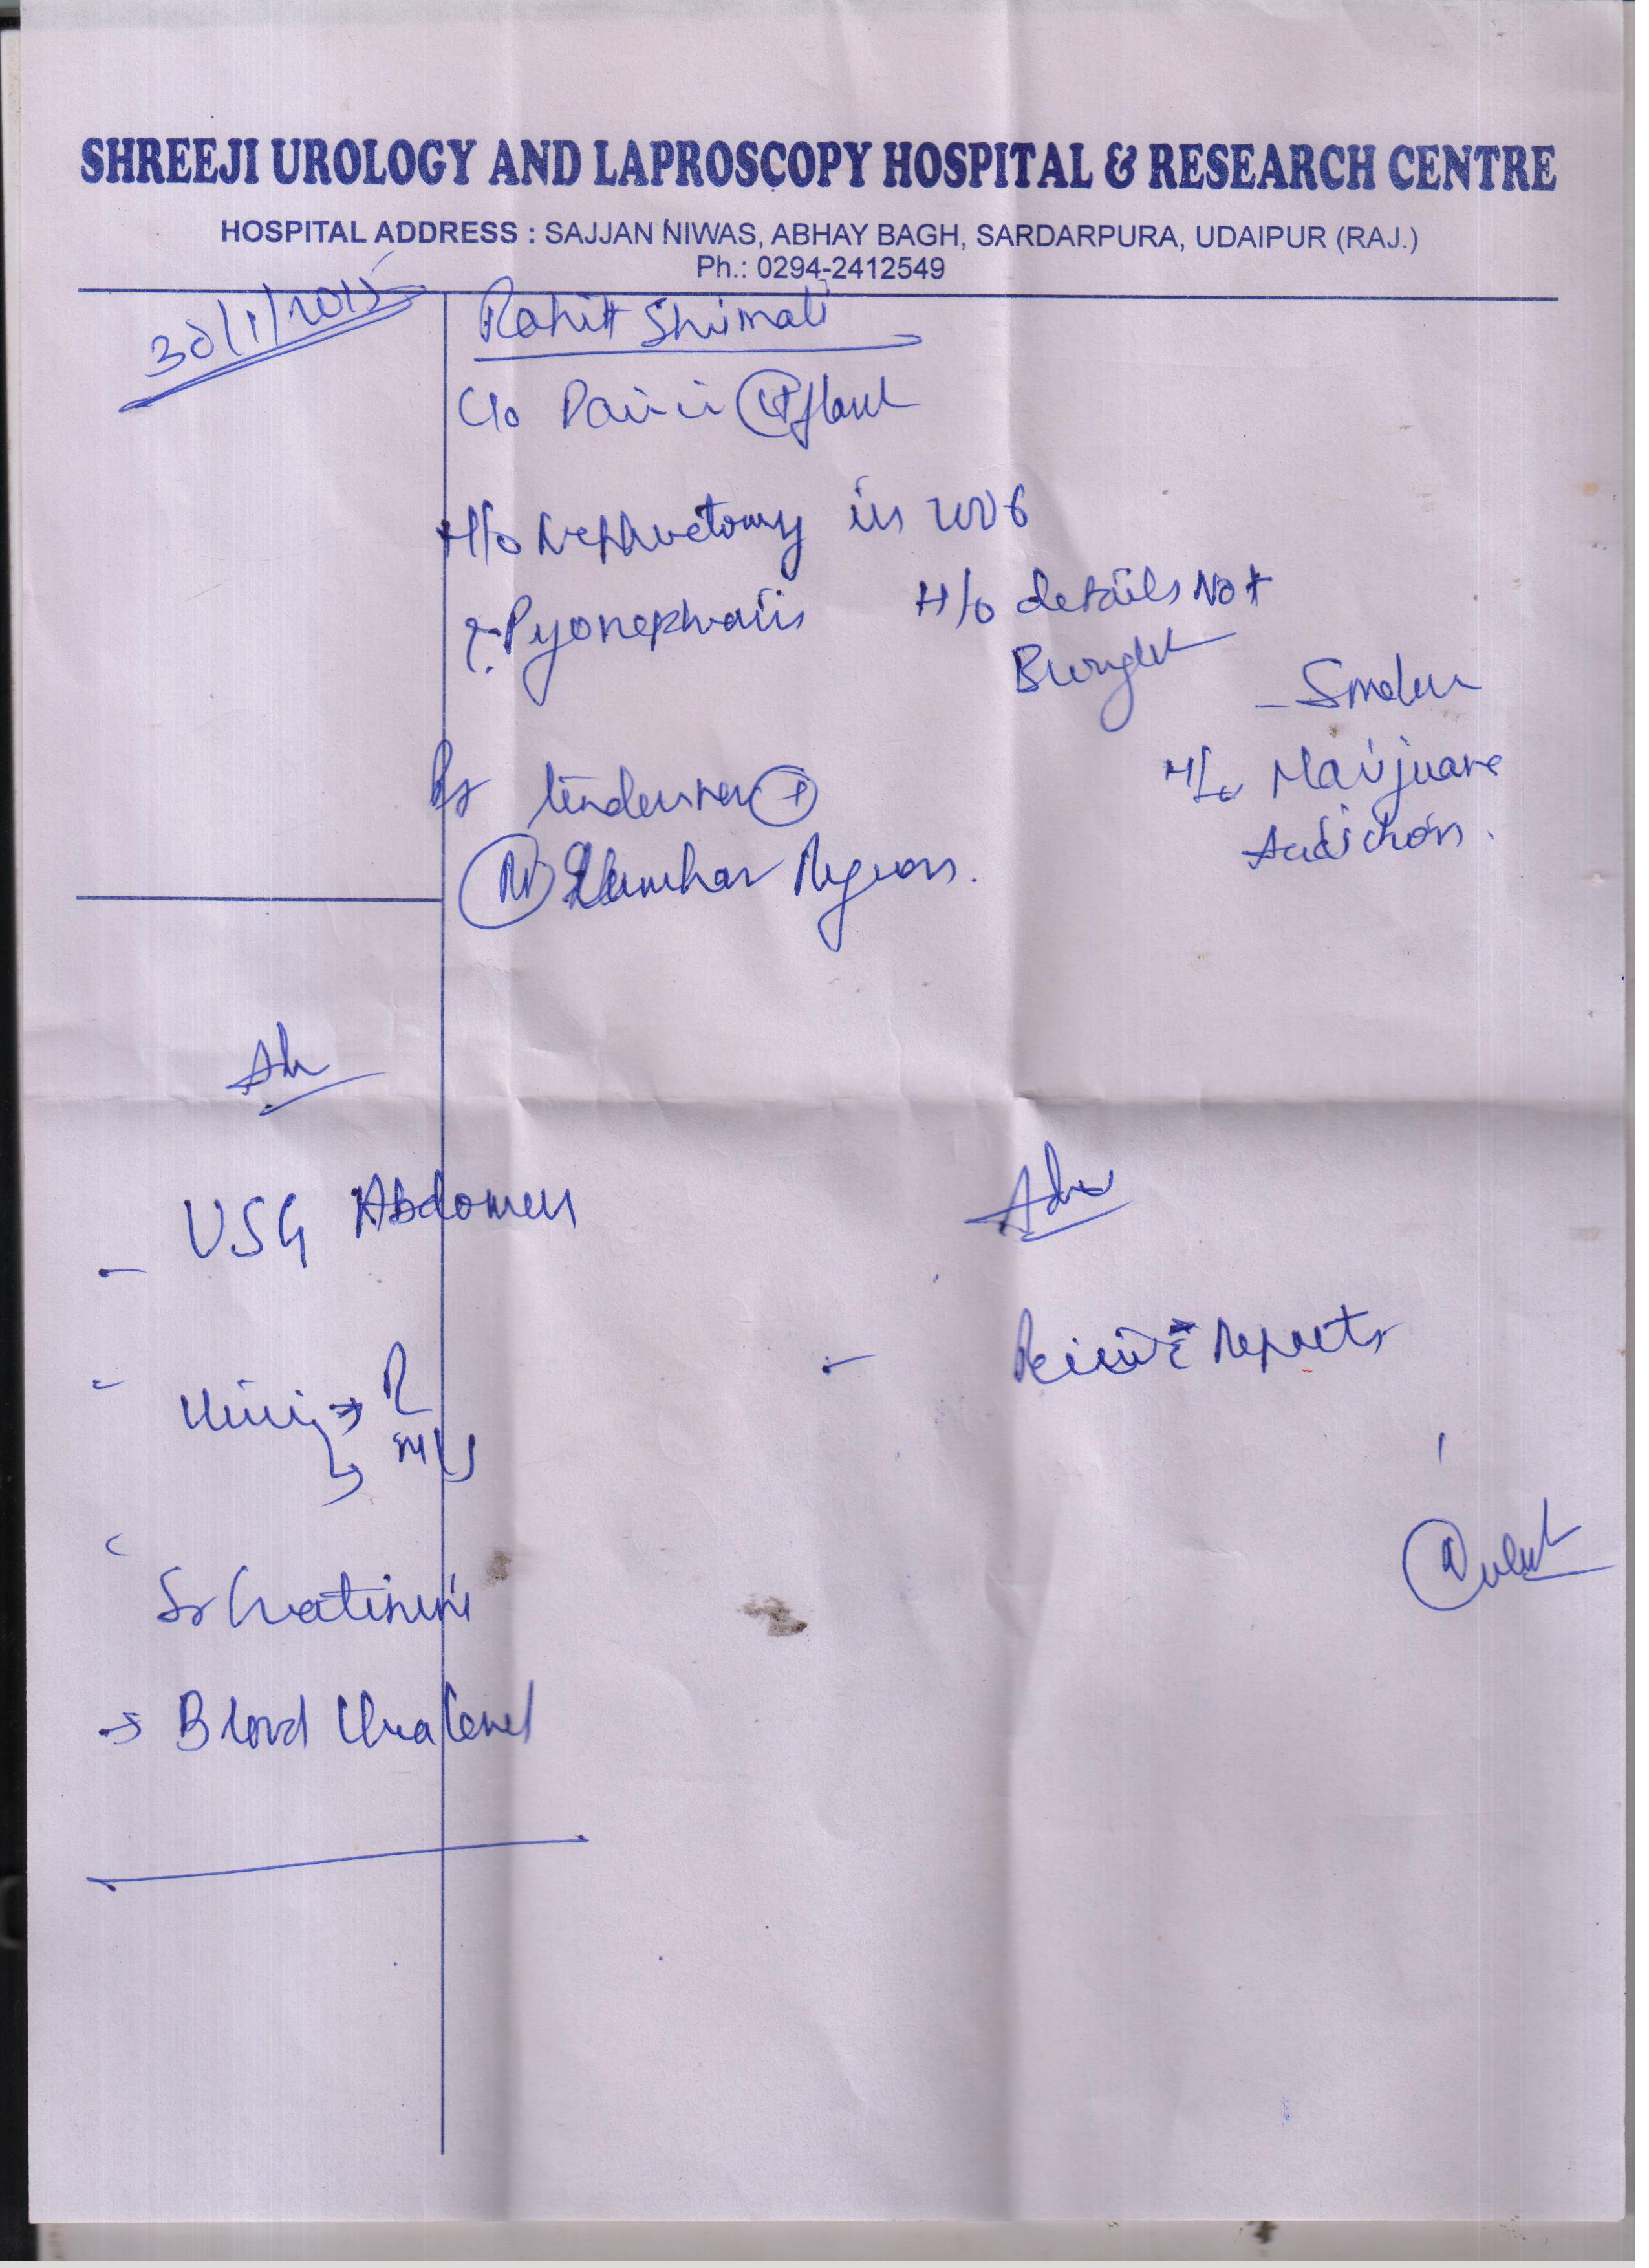 SHREEJI UROLOGY AND LAPROSCOPY HOSPITAL & RESEARCH CENTRE
HOSPITAL ADDRESS : SAJJAN NIWAS, ABHAY BAGH, SARDARPURA, UDAIPUR (RAJ.)
Ph.: 0294-2412549
30/1/2015
Rohit Shrimali
C/o Pain in flank
H/o Nephrectomy in 2006
? Pyonephrosis
H/o details Not
Brought
- Smoker
H/o Marijuana
Addiction.
tenderness +
Rt Lumbar Region.
Adv
- USG Abdomen
- Urine → R
↳ M/S
Sr Creatinine
→ Blood Urea level
Adv
- Review c Reports